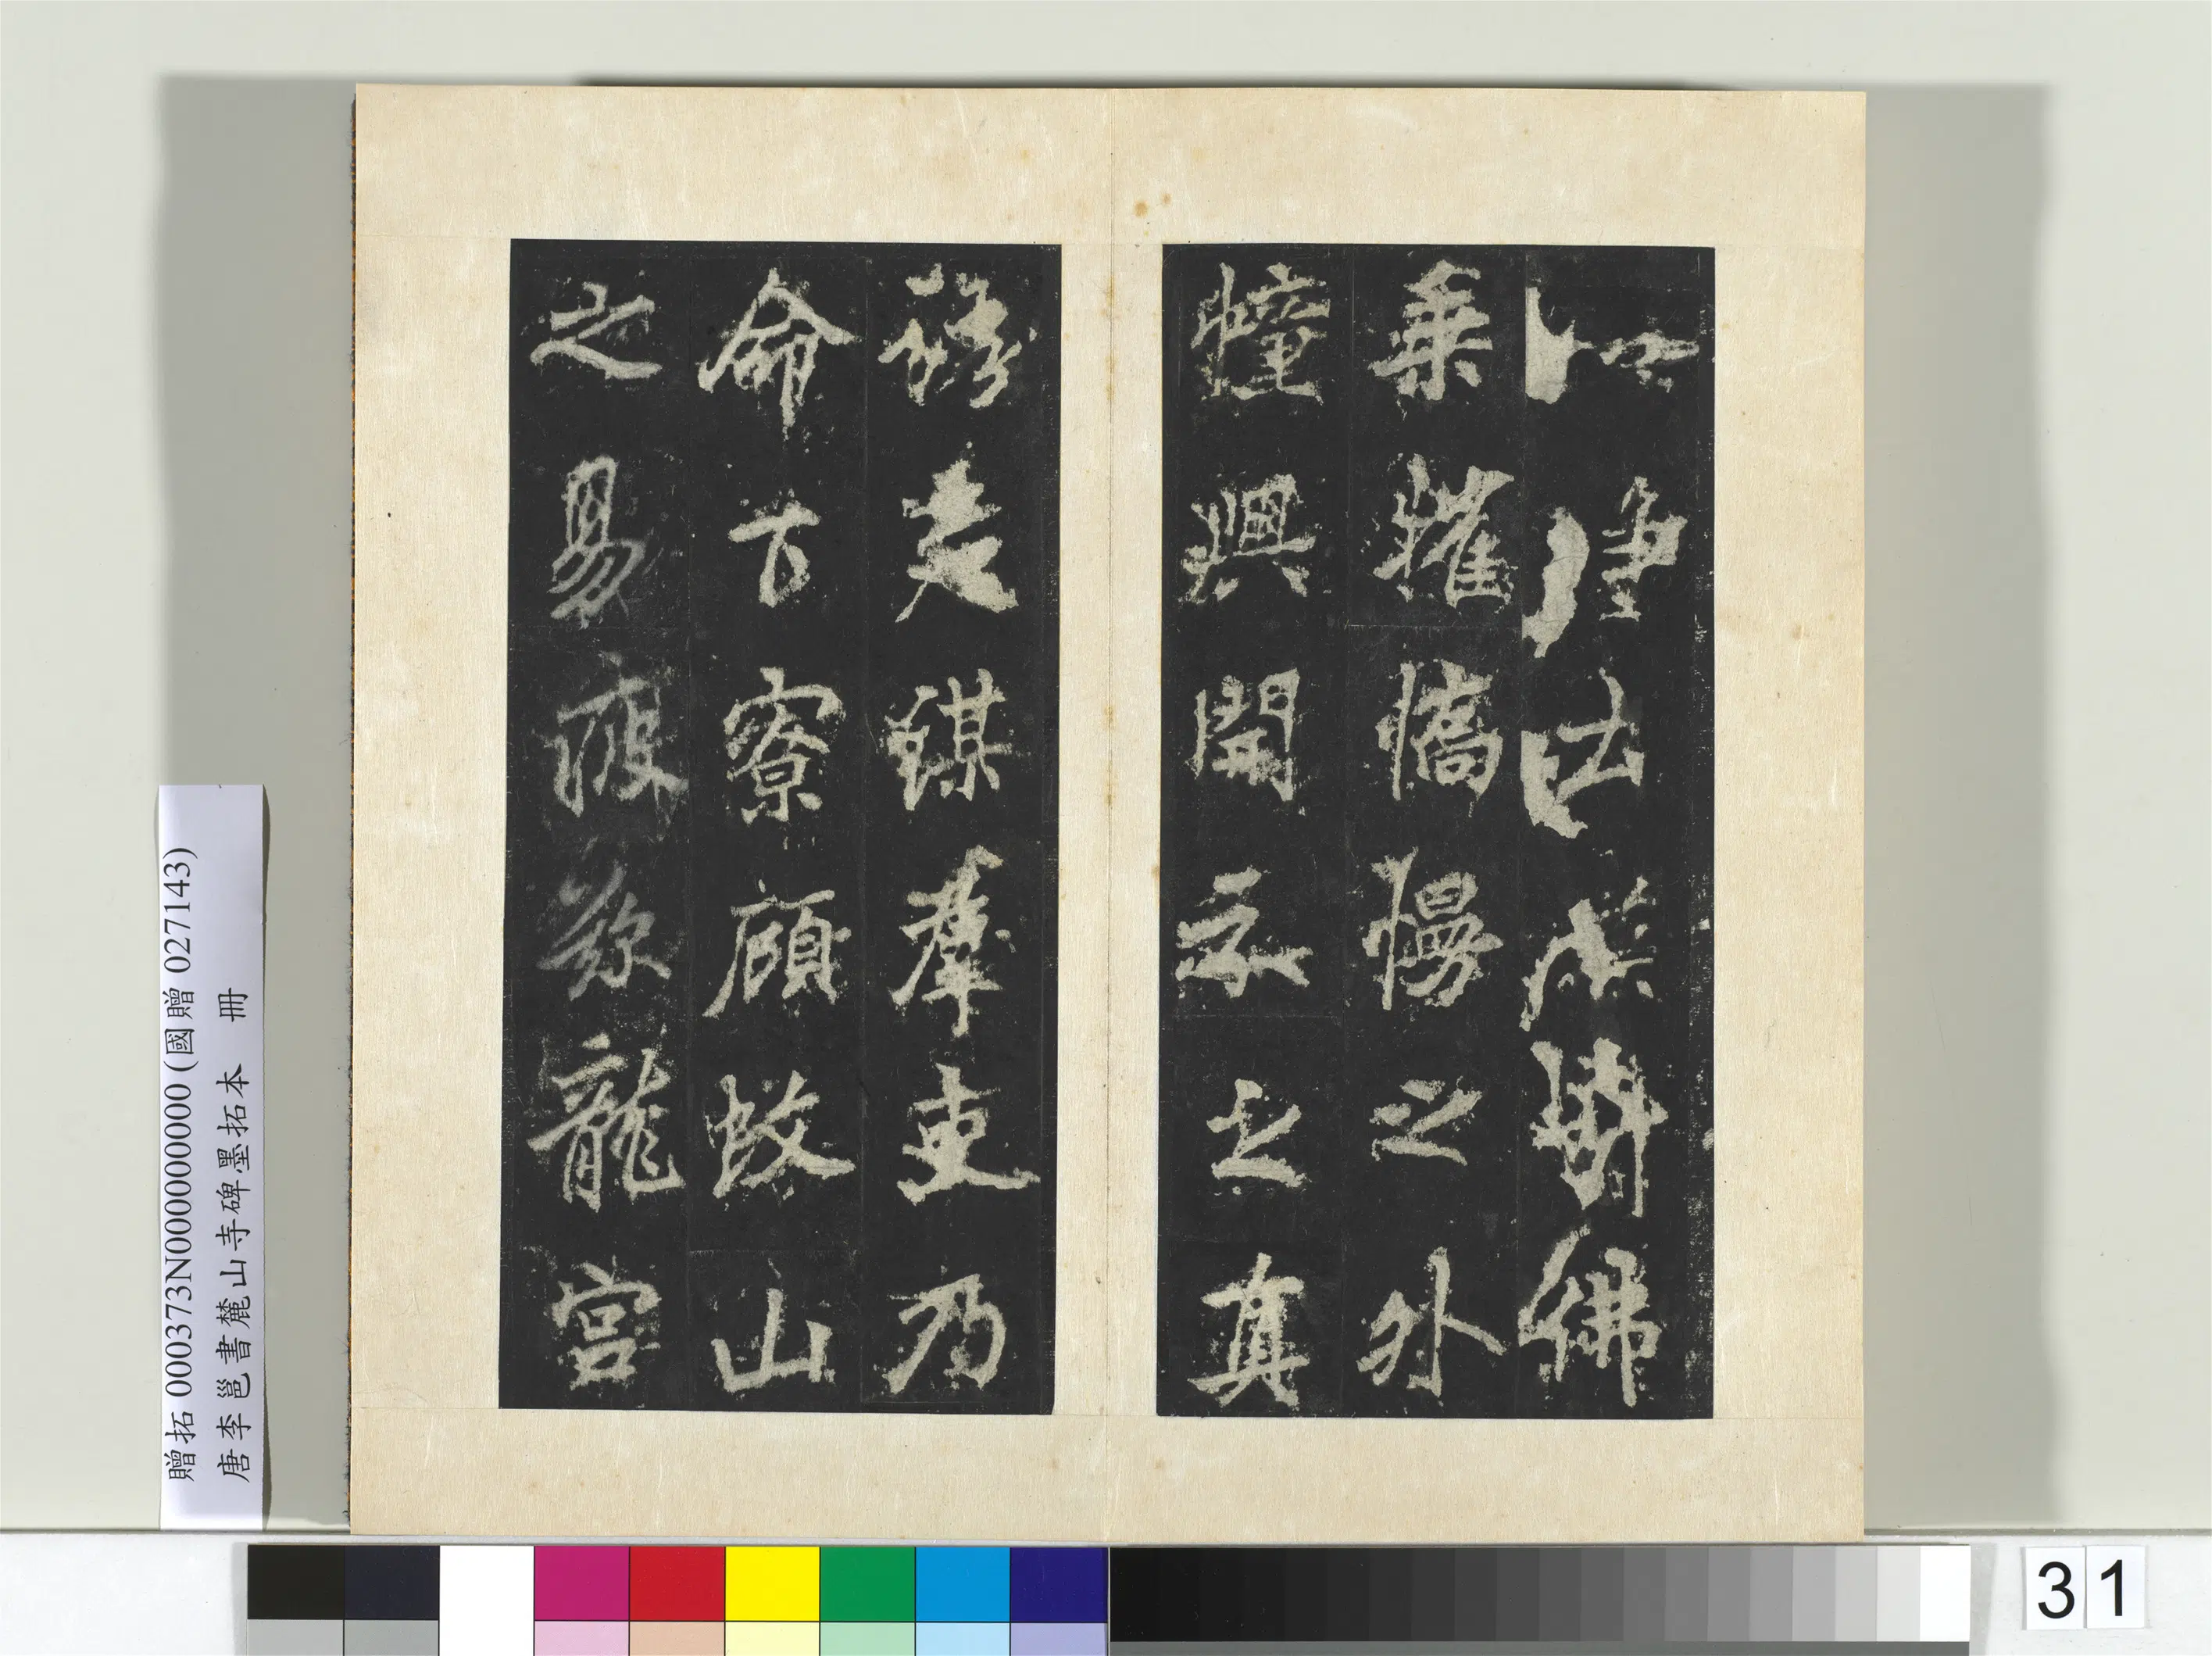 淨土佛
乘摧憍慢之外
幢興開之真
謀羣吏乃
命下寮顧蚊山
之易疲龍宮
贈拓 000373N000000000 (國贈 027143)
唐李邕書麓山寺碑墨拓本 冊
31